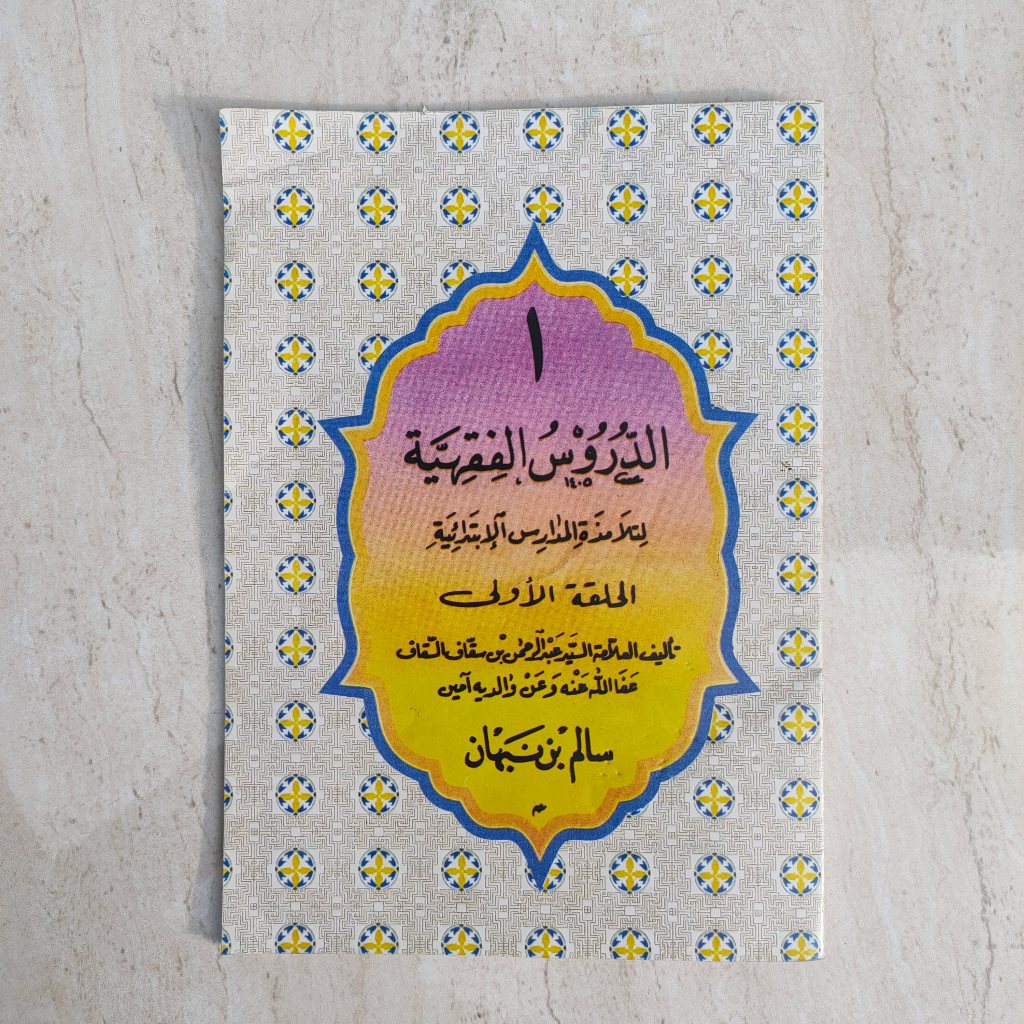 ١
الدُّرُوْسُ الفِقْهِيَّة
١٤٠٥
لِتَلَامِذَةِ المَدَارِسِ الإِبْتَدَائِيَّةِ
الحلقة الأولى
تأليف العلامة السَّيِّد عَبْدُ الرَّحمٰن بْن سقَّاف السَّقاف
عَفَا اللّٰهُ عَنْه وَعَنْ وَالديه آمين
سالم بْن نَبْهَان